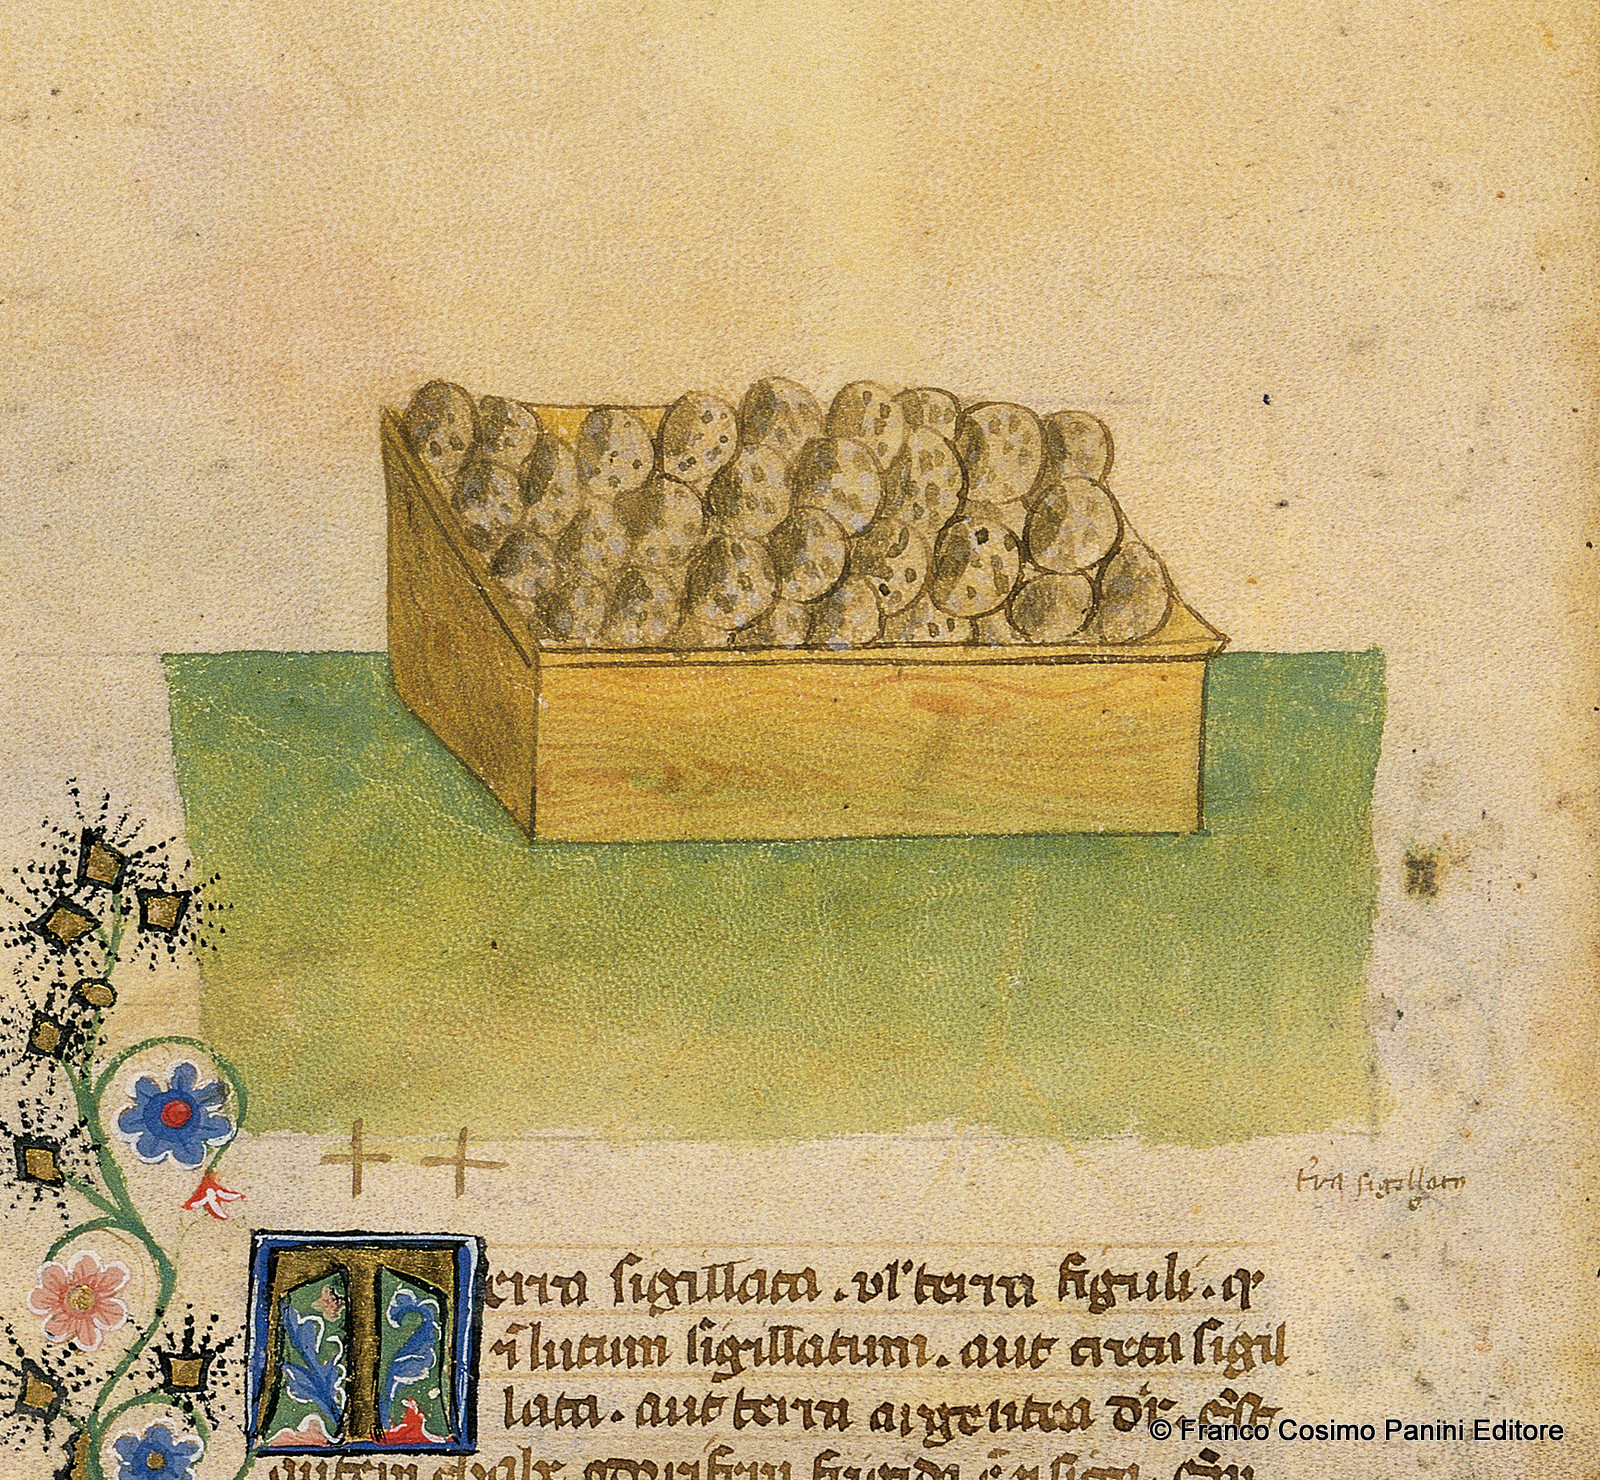 t̄ra sigillata
Terra sigillata . vl' terra figuli . q̄
lutum sigillatum . aut creta sigil
lata . aut terra argentea dr̄
© Franco Cosimo Panini Editore